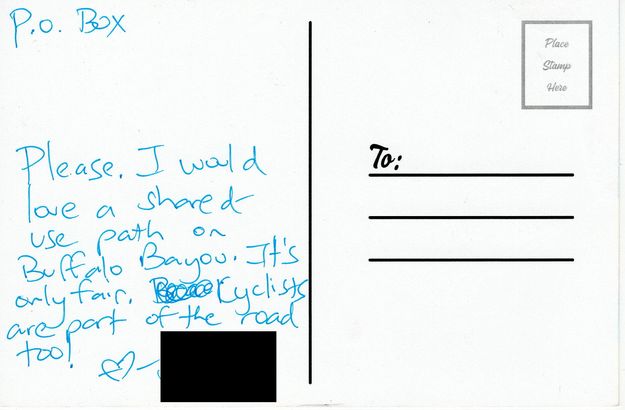 P.o. Box
Place
Stamp
Here
Please. I would
love a shared-
use path on
Buffalo Bayou. It's
only fair. Cyclists
are part of the road
too!
To: